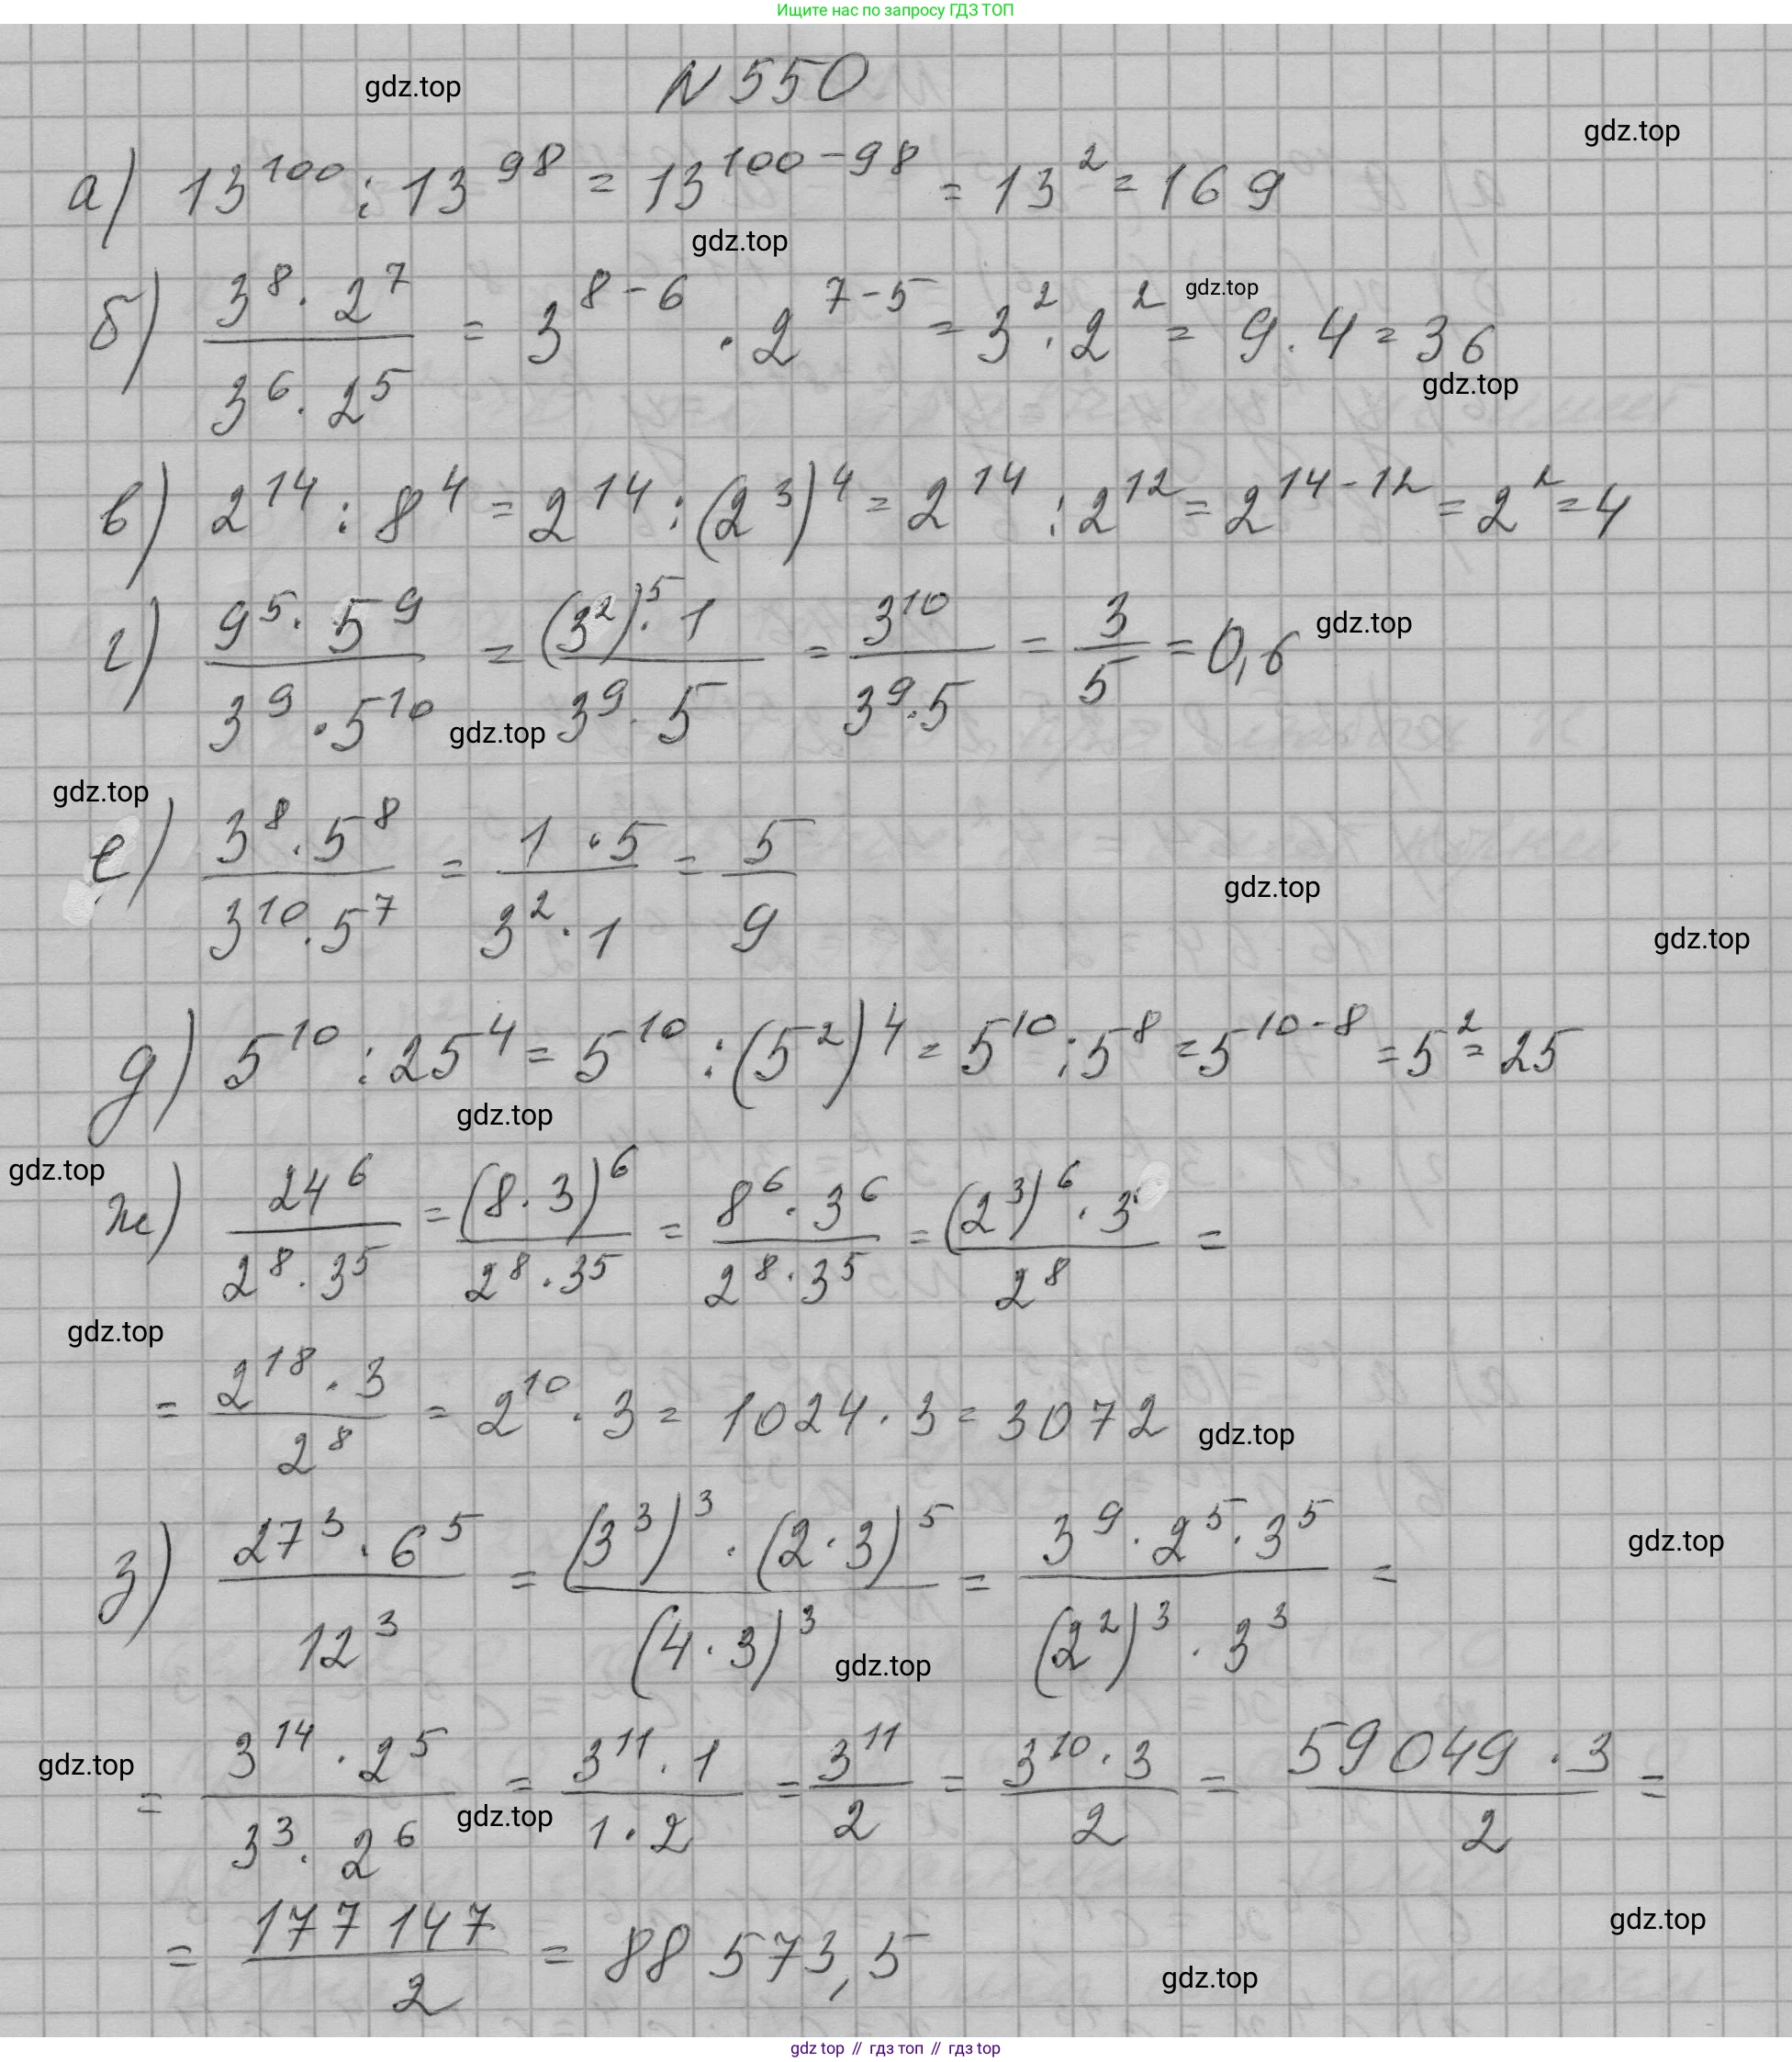 Ищите нас по запросу ГДЗ ТОП
gdz.top
N 550
gdz.top
а) 13^100 : 13^98 = 13^(100-98) = 13^2 = 169
gdz.top
б) (3^8 · 2^7)/(3^6 · 2^5) = 3^(8-6) · 2^(7-5) = 3^2 · 2^2 = 9 · 4 = 36
gdz.top
gdz.top
в) 2^14 : 8^4 = 2^14 : (2^3)^4 = 2^14 : 2^12 = 2^(14-12) = 2^2 = 4
г) (9^5 · 5^9)/(3^9 · 5^10) = ((3^2)^5 · 1)/(3^9 · 5) = 3^10/(3^9 · 5) = 3/5 = 0,6
gdz.top
gdz.top
gdz.top
е) (3^8 · 5^8)/(3^10 · 5^7) = (1 · 5)/(3^2 · 1) = 5/9
gdz.top
gdz.top
д) 5^10 : 25^4 = 5^10 : (5^2)^4 = 5^10 : 5^8 = 5^(10-8) = 5^2 = 25
gdz.top
gdz.top
ж) 24^6/(2^8 · 3^5) = (8 · 3)^6/(2^8 · 3^5) = (8^6 · 3^6)/(2^8 · 3^5) = ((2^3)^6 · 3)/2^8 =
gdz.top
= (2^18 · 3)/2^8 = 2^10 · 3 = 1024 · 3 = 3072
gdz.top
з) (27^3 · 6^5)/12^3 = ((3^3)^3 · (2 · 3)^5)/(4 · 3)^3 = (3^9 · 2^5 · 3^5)/((2^2)^3 · 3^3) =
gdz.top
gdz.top
gdz.top
= (3^14 · 2^5)/(3^3 · 2^6) = (3^11 · 1)/(1 · 2) = 3^11/2 = (3^10 · 3)/2 = (59049 · 3)/2 =
gdz.top
= 177 147/2 = 88 573,5
gdz.top
gdz.top
gdz top // гдз топ // гдз top